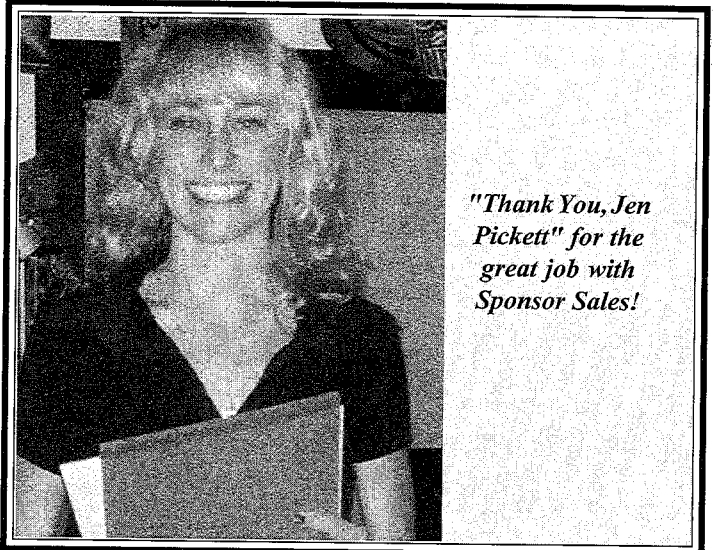 "Thank You, Jen
Pickett" for the
great job with
Sponsor Sales!